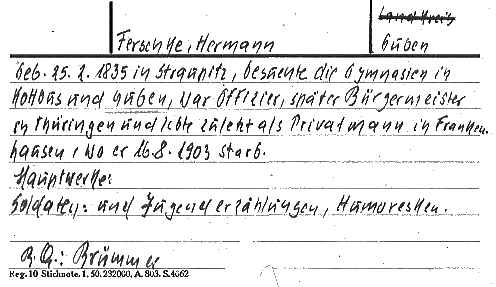 Landkreis
Ferschke, Hermann Guben
Geb. 25. 2. 1835 in Straupitz, besuchte die Gymnasien in
Kottbus und Guben, war Offizier, später Bürgermeister
in Thüringen und lebte zuletzt als Privatmann in Franken-
hausen, wo er 16.8. 1903 starb.
Hauptwerke:
Soldaten- und Jugenderzählungen, Humoresken.
B.Q.: Brümmer
Reg. 10 Stichnote. 1, 50. 232000, A. 803. S.4662